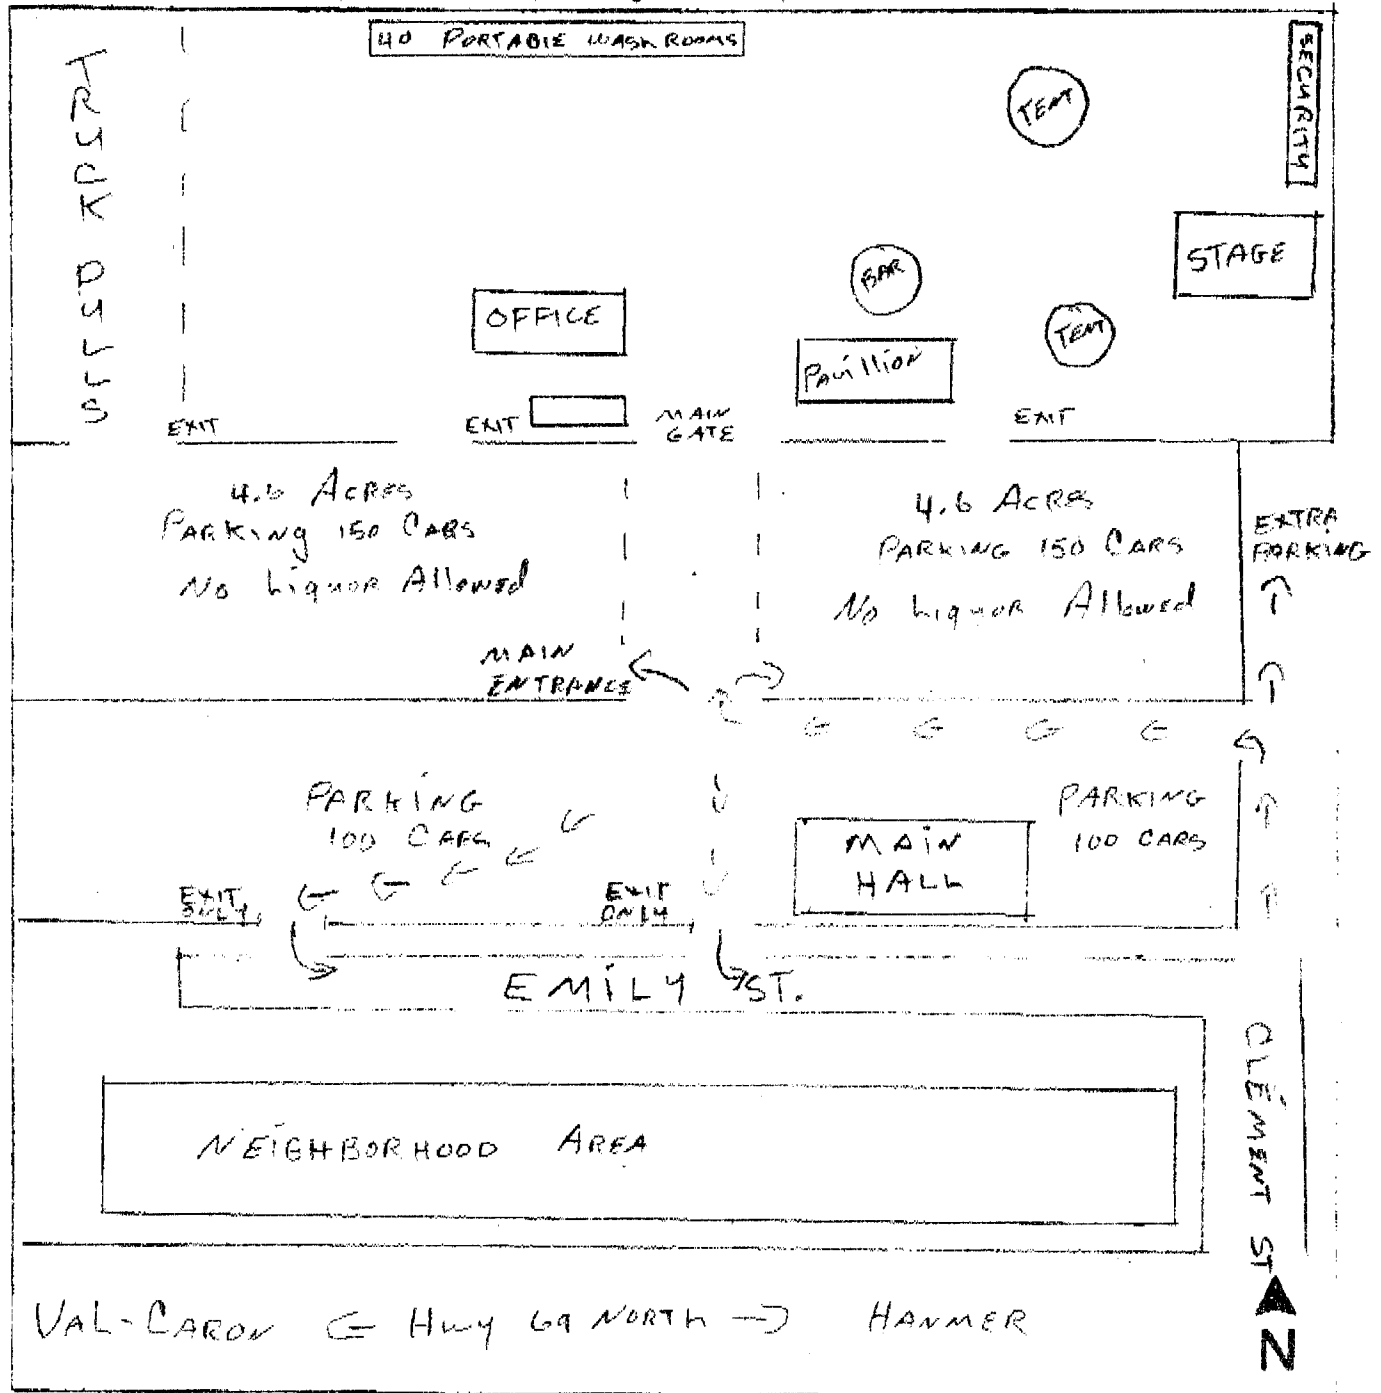 40 PORTABLE WASHROOMS
SECURITY
TRUCK PULLS
TENT
STAGE
BAR
OFFICE
TENT
Pavillion
EXIT
EXIT
MAIN
GATE
EXIT
4.6 Acres
PARKING 150 CARS
No Liquor Allowed
4.6 Acres
PARKING 150 CARS
No Liquor Allowed
EXTRA
PARKING
MAIN
ENTRANCE
PARKING
100 CARS
MAIN
HALL
PARKING
100 CARS
EXIT
ONLY
EXIT
ONLY
EMILY ST.
CLÉMENT ST
NEIGHBORHOOD AREA
VAL-CARON ← Hwy 69 NORTH → HANMER
N